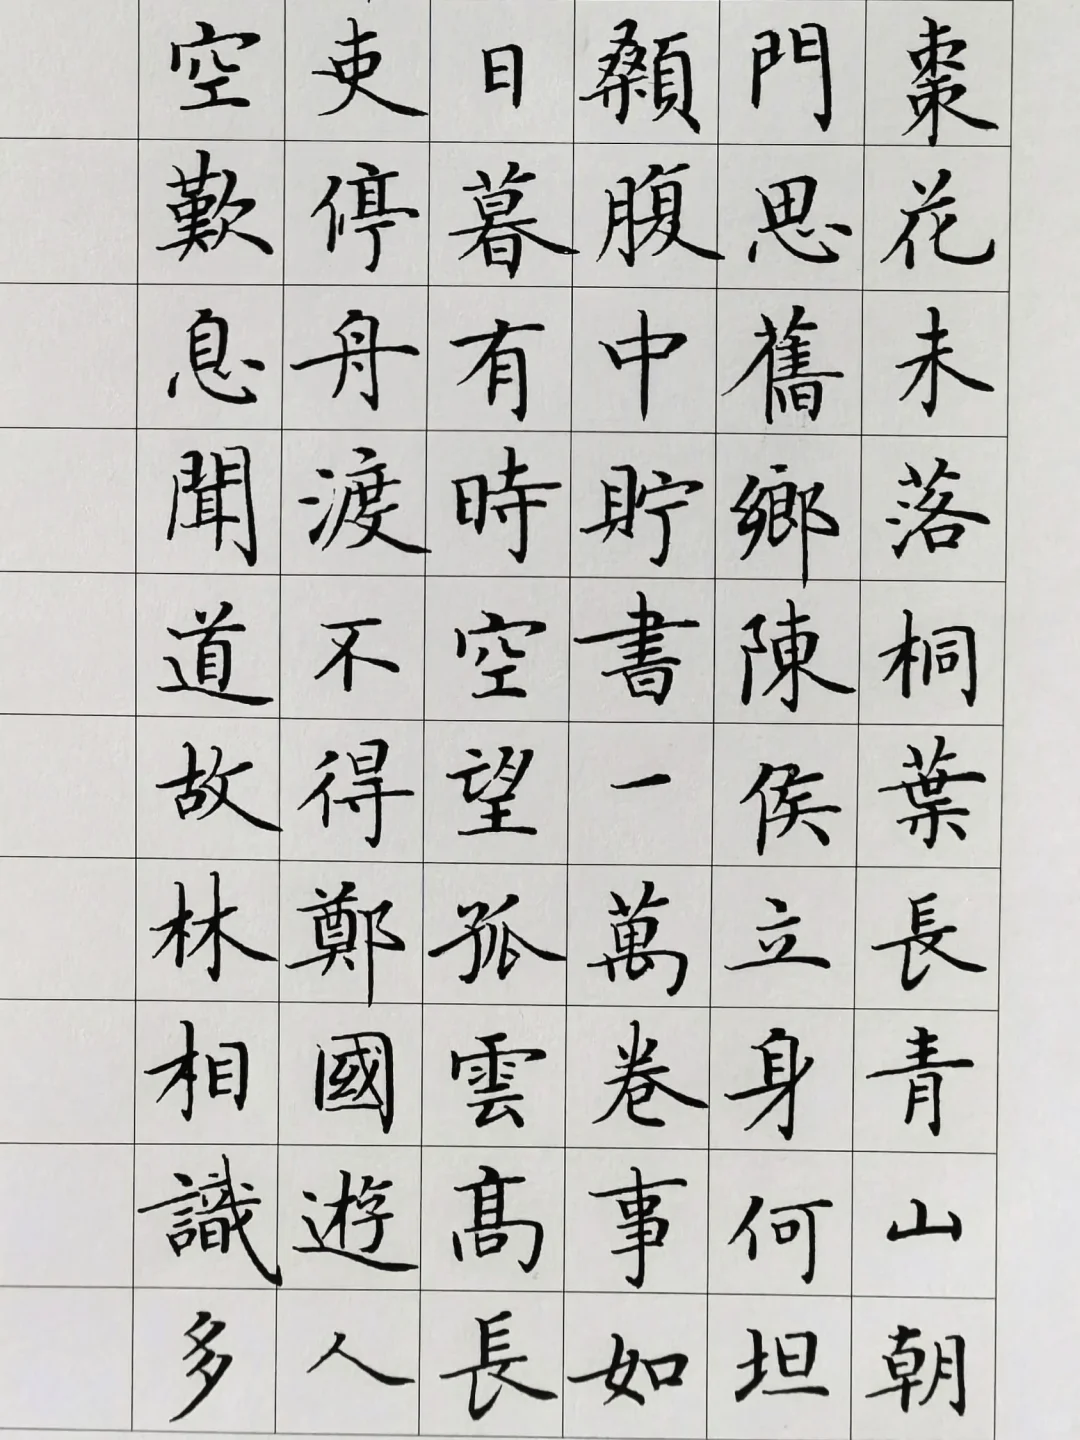 棗花未落桐葉長青山朝
門思舊鄉陳侯立身何坦
顙腹中貯書一萬卷事如
日暮有時空望孤雲髙長
吏停舟渡不得鄭國遊人
空歎息聞道故林相識多